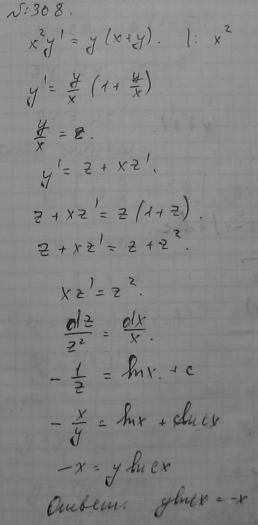 №:308.
x²y' = y(x+y). |: x²
y' = y/x (1 + y/x)
y/x = z.
y' = z + xz'.
z + xz' = z(1+z).
z + xz' = z + z².
xz' = z².
dz/z² = dx/x.
- 1/z = lnx. + c
- x/y = lnx + lncx
-x = y lncx
Ответ: ylncx = -x